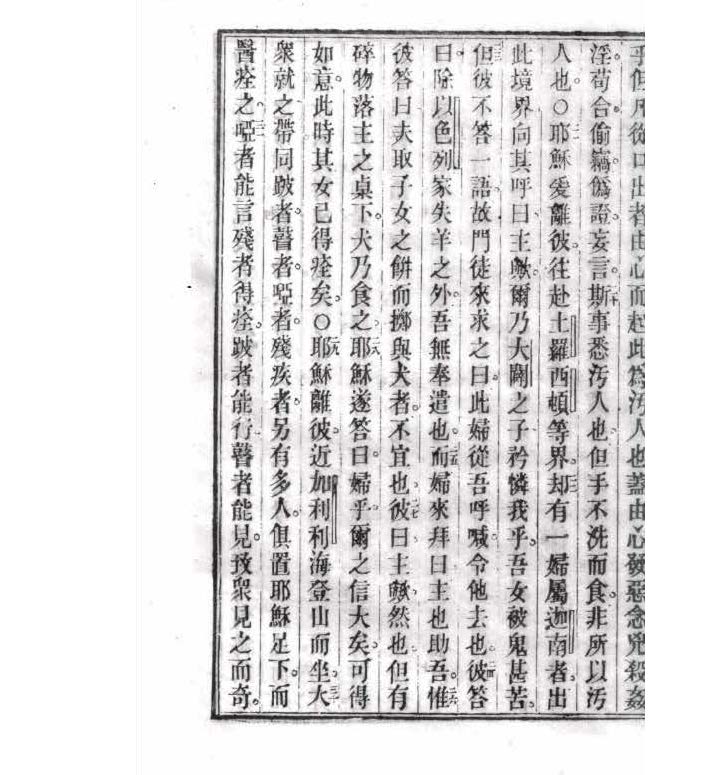 乎但凡從口出者由心而起此為汚人也蓋由心發惡念兇殺姦
淫苟合偷竊僞證妄言。斯事悉汚人也但手不洗而食。非所以汚
人也。〇耶穌愛離彼。往赴土羅西頓等界。却有一婦屬迦南者出
此境界向其呼曰主歟。爾乃大闢之子矜憐我乎。吾女被鬼甚苦。
但彼不答一語。故門徒來求之曰。此婦從吾呼喊。令他去也。彼答
曰。除以色列家失羊之外。吾無奉遣也。而婦來拜曰主也助吾。惟
彼答曰夫取子女之餅而擲與犬者。不宜也。彼曰主歟。然也但有
碎物落主之桌下。犬乃食之。耶穌遂答曰。婦乎。爾之信大矣。可得
如意。此時其女已得痊矣。〇耶穌離彼。近加利利海登山而坐。大
衆就之帶同跛者。瞽者。啞者。殘疾者。另有多人。俱置耶穌足下。而
醫痊之。啞者能言殘者得痊。跛者能行瞽者能見。致衆見之而奇。